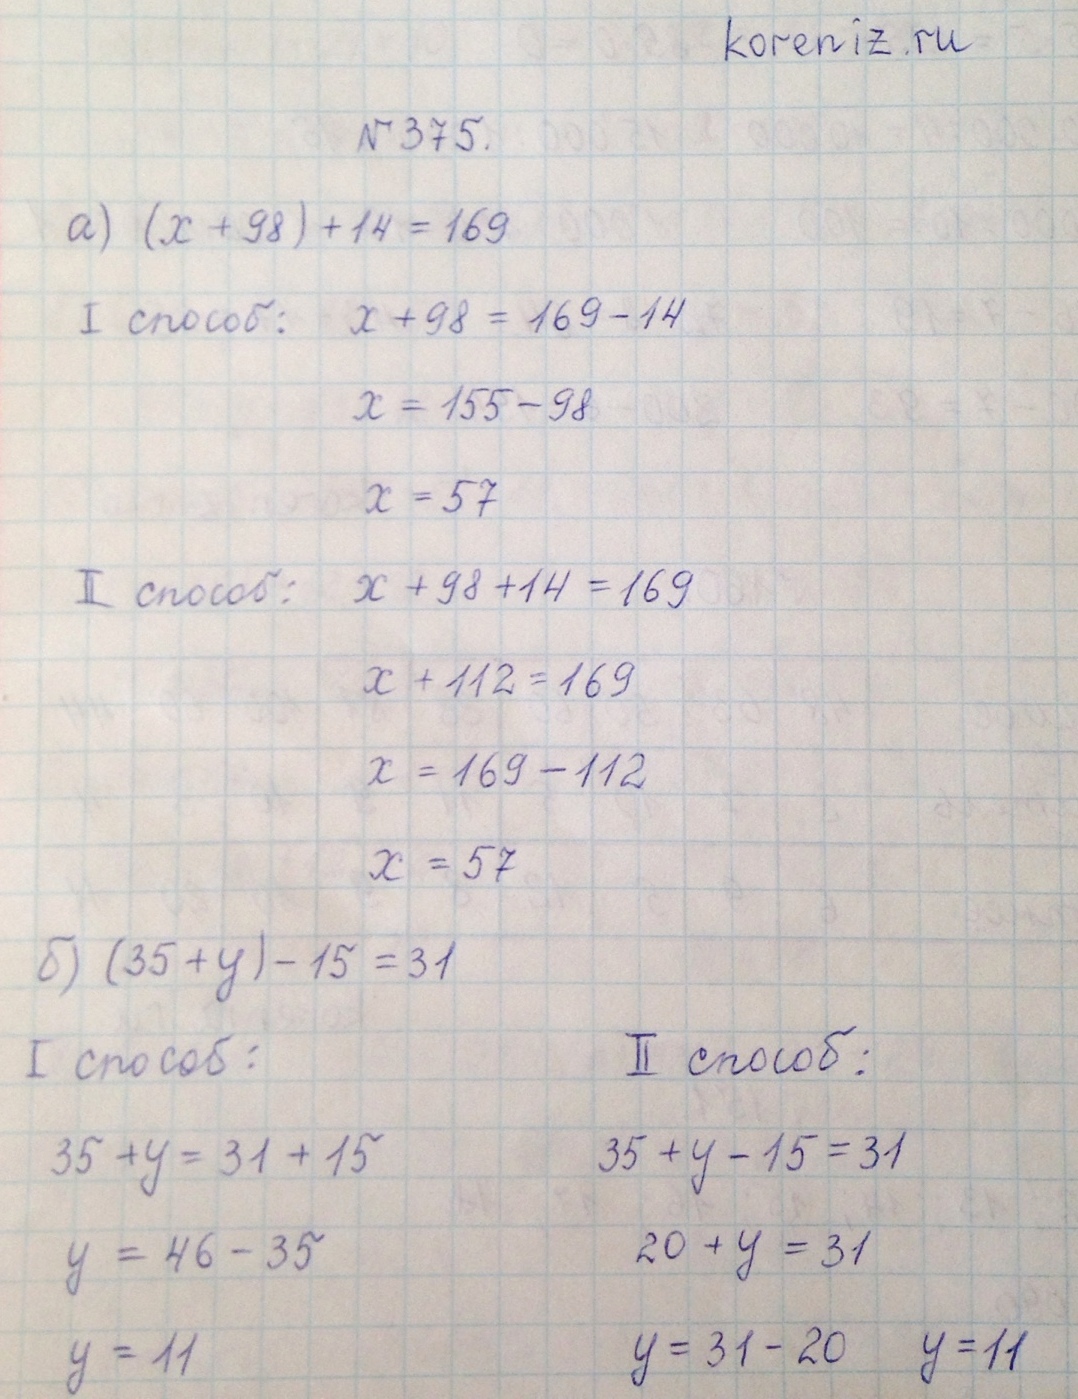 koreniz.ru
№375.
а) (x + 98) + 14 = 169
I способ: x + 98 = 169 - 14
x = 155 - 98
x = 57
II способ: x + 98 + 14 = 169
x + 112 = 169
x = 169 - 112
x = 57
б) (35 + y) - 15 = 31
I способ: II способ:
35 + y = 31 + 15 35 + y - 15 = 31
y = 46 - 35 20 + y = 31
y = 11 y = 31 - 20 y = 11